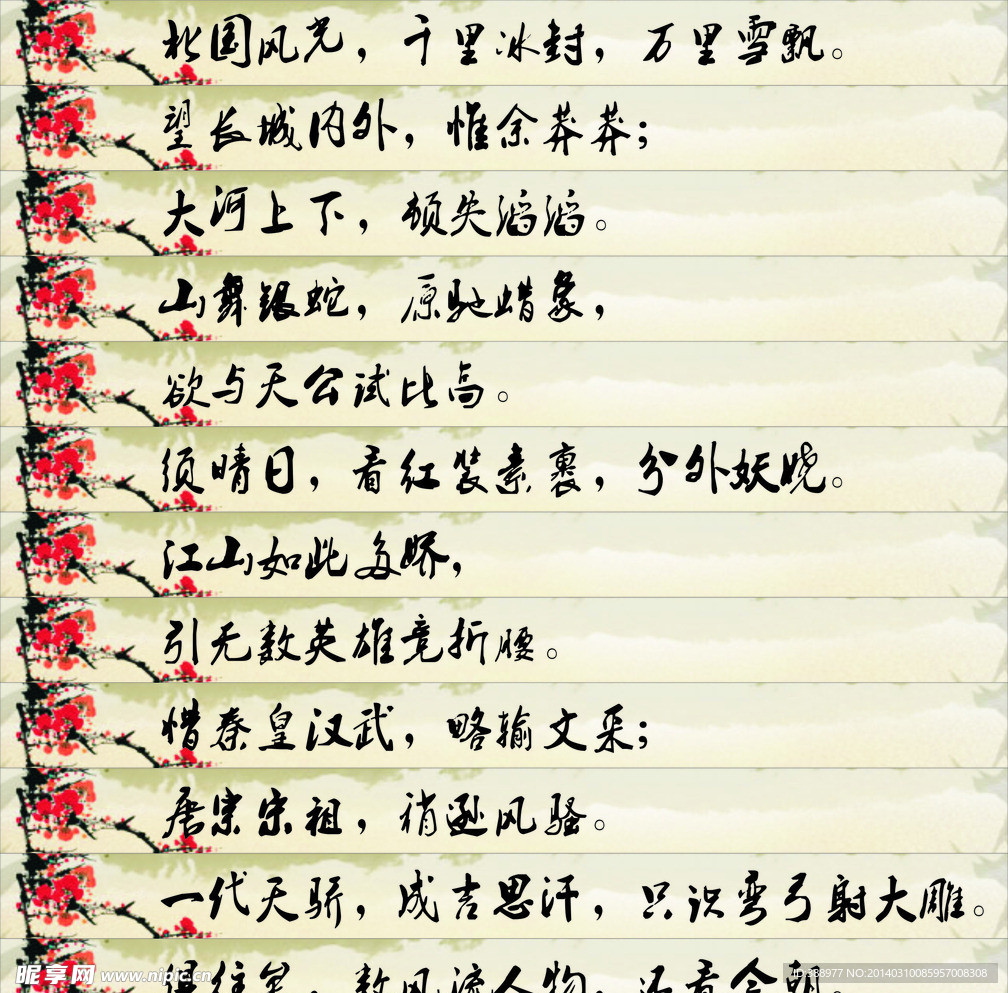 北国风光，千里冰封，万里雪飘。
望长城内外，惟余莽莽；
大河上下，顿失滔滔。
山舞银蛇，原驰蜡象，
欲与天公试比高。
须晴日，看红装素裹，分外妖娆。
江山如此多娇，
引无数英雄竞折腰。
惜秦皇汉武，略输文采；
唐宗宋祖，稍逊风骚。
一代天骄，成吉思汗，只识弯弓射大雕。
俱往矣，数风流人物，还看今朝。
昵享网 www.nipic.cn
ID:388977 NO:20140310085957008308